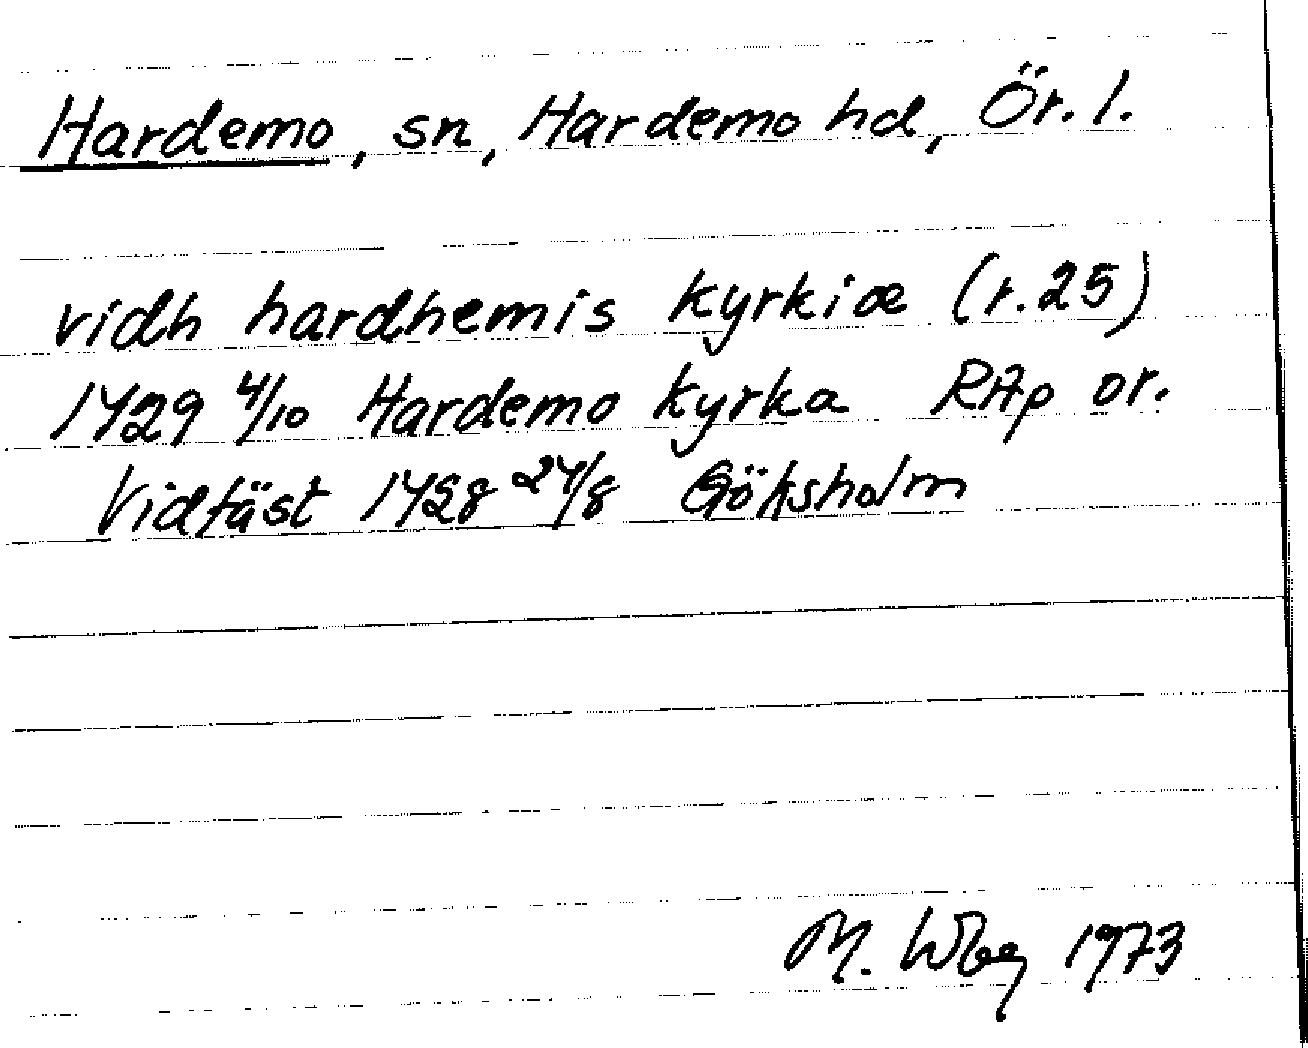 Hardemo, sn, Hardemo hd, Ör. l.
vidh hardhemis kyrkiæ (r. 25)
1429 4/10 Hardemo kyrka RAp or.
Vidfäst 1428 24/8 Göksholm
M. Wbg 1973